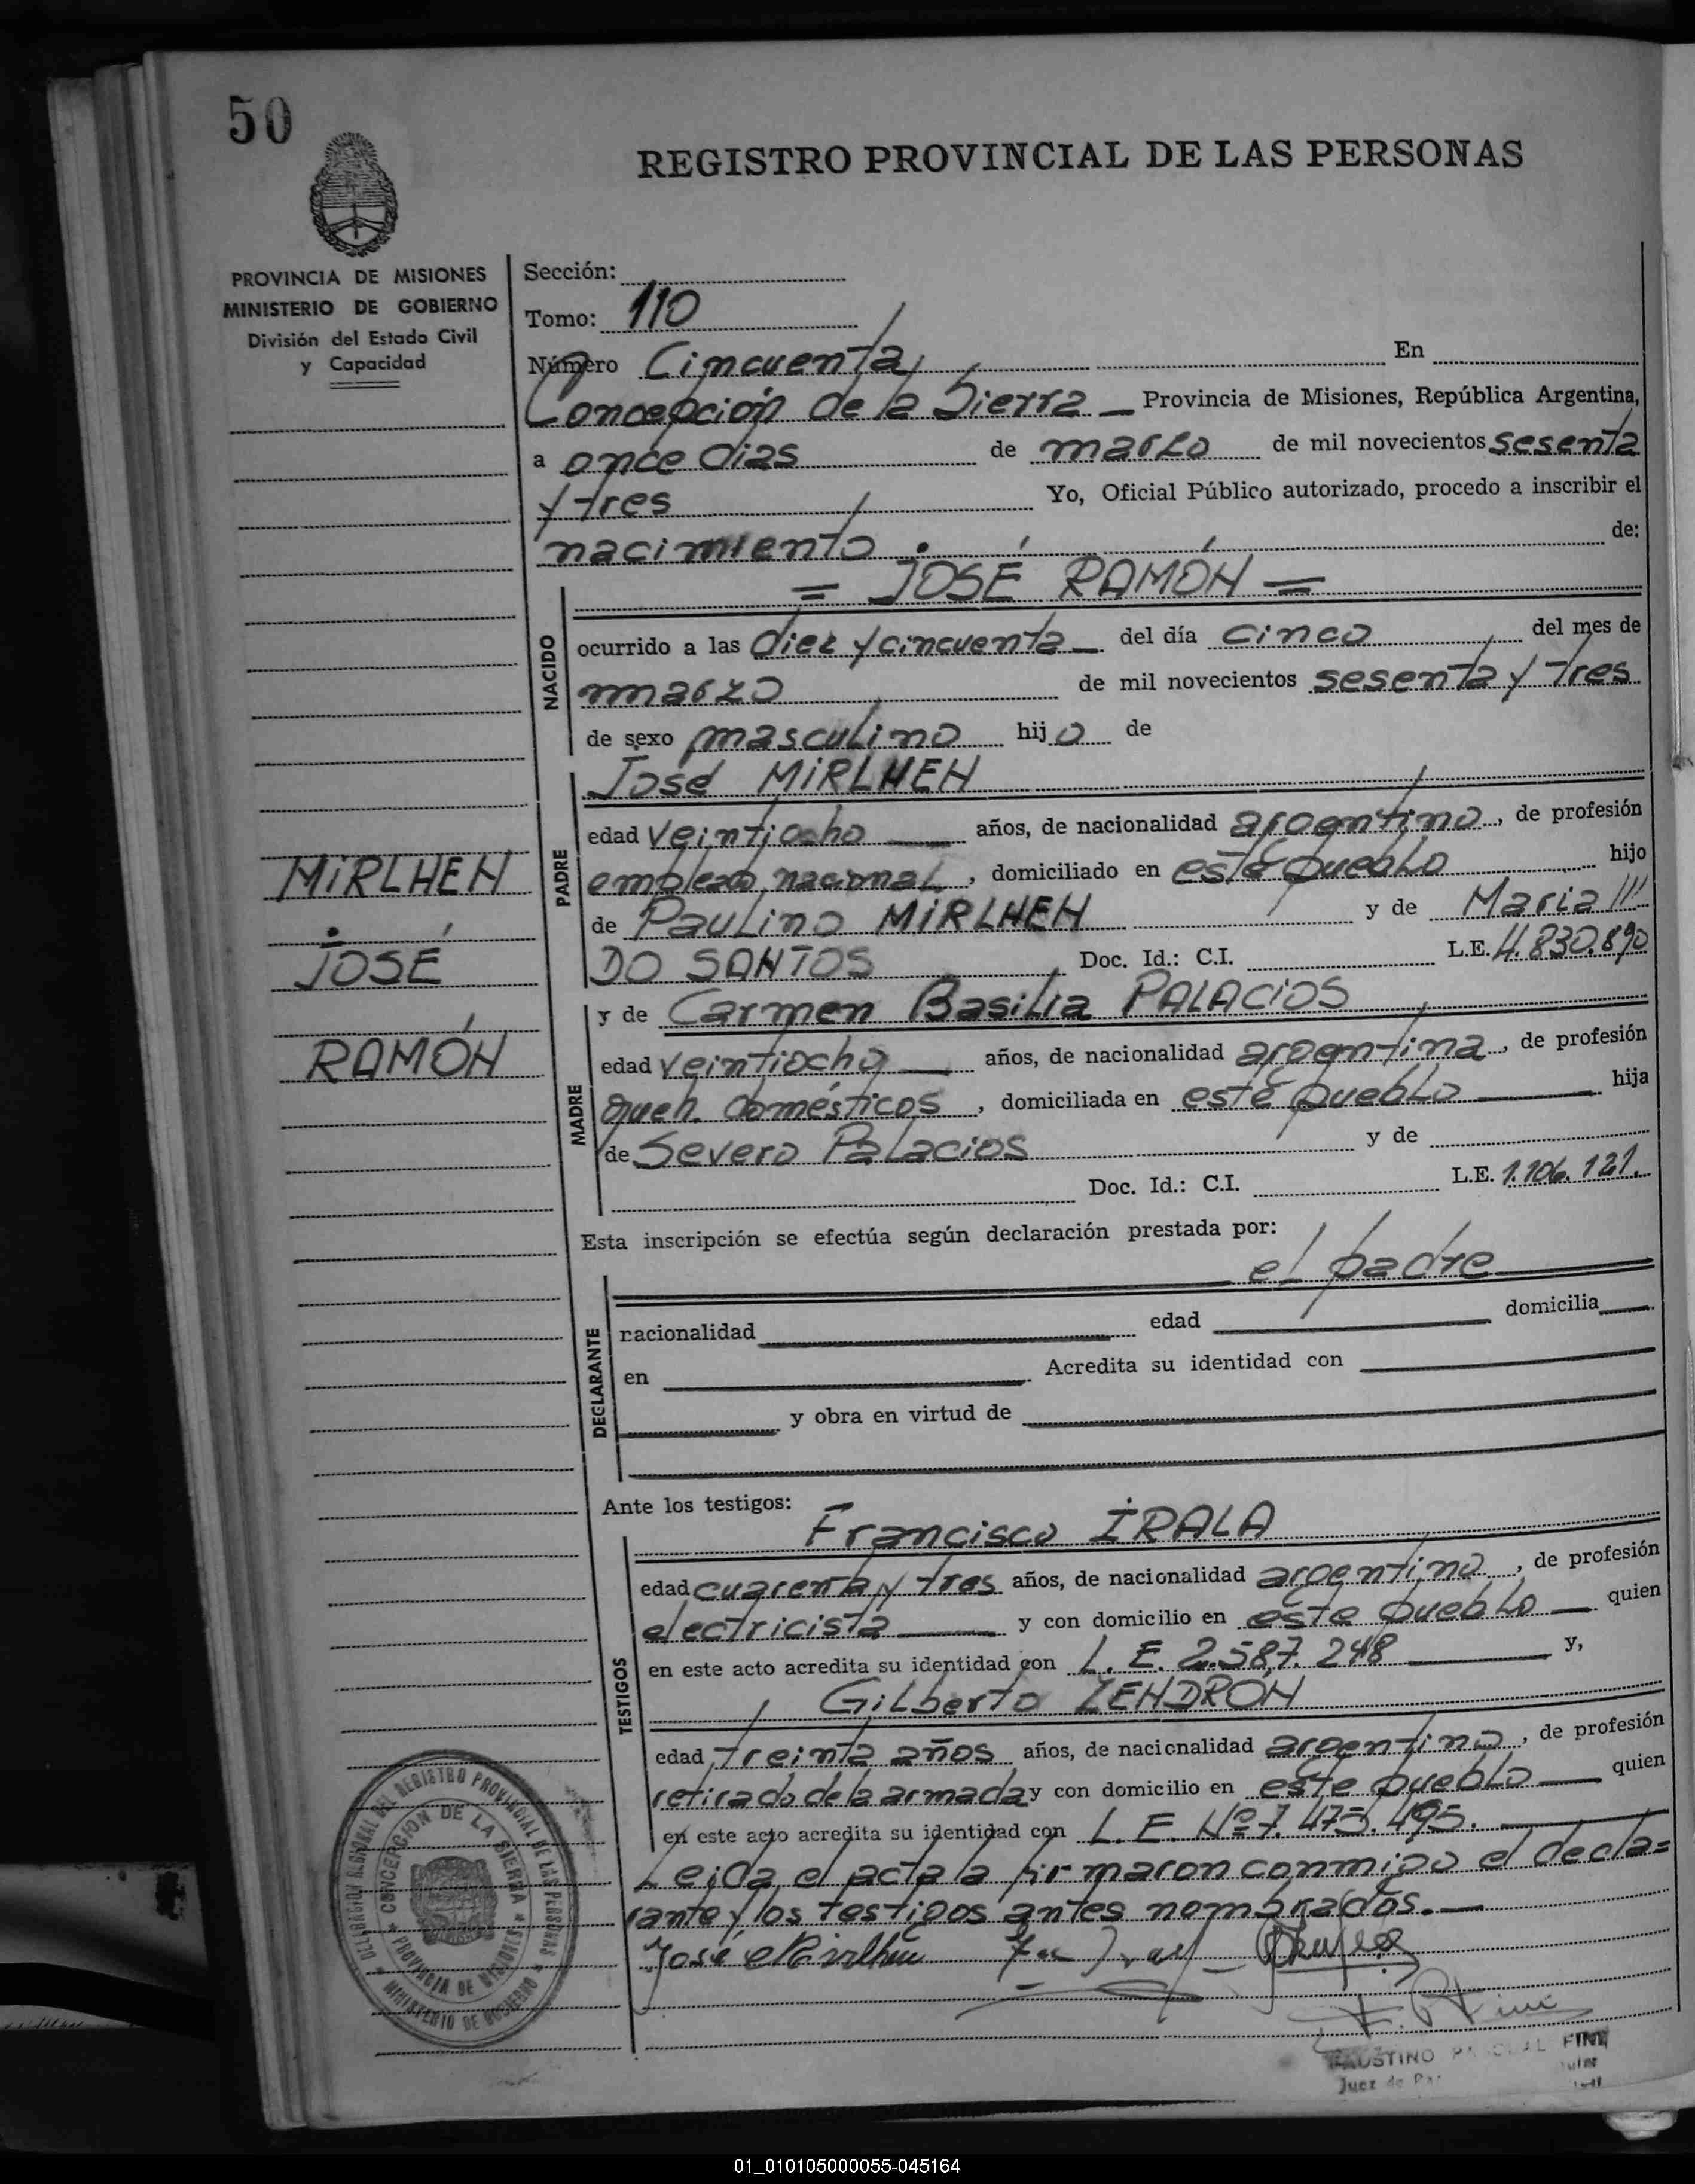 50
REGISTRO PROVINCIAL DE LAS PERSONAS
PROVINCIA DE MISIONES
MINISTERIO DE GOBIERNO
División del Estado Civil
y Capacidad
Sección:
Tomo: 110
Número Cincuenta En
Concepción de la Sierra Provincia de Misiones, República Argentina,
a once dias de marzo de mil novecientos sesenta
y tres Yo, Oficial Público autorizado, procedo a inscribir el
nacimiento de:
= JOSÉ RAMÓN =
NACIDO
ocurrido a las diez y cincuenta del día cinco del mes de
marzo de mil novecientos sesenta y tres
de sexo masculino hijo de
PADRE
José MIRLHEN
edad veintiocho años, de nacionalidad argentino, de profesión
empleado nacional, domiciliado en este pueblo hijo
de Paulino MIRLHEN y de Maria
DO SANTOS Doc. Id.: C.I. L.E. 4.830.890
MIRLHEN
JOSÉ
RAMÓN
MADRE
y de Carmen Basilia PALACIOS
edad veintiocho años, de nacionalidad argentina, de profesión
queh. domésticos, domiciliada en este pueblo hija
de Severo Palacios y de
Doc. Id.: C.I. L.E. 1.106.121.
Esta inscripción se efectúa según declaración prestada por:
el padre
DECLARANTE
nacionalidad edad domicilia
en Acredita su identidad con
y obra en virtud de
Ante los testigos:
TESTIGOS
Francisco IRALA
edad cuarenta y tres años, de nacionalidad argentino, de profesión
electricista y con domicilio en este pueblo quien
en este acto acredita su identidad con L. E. 2.587.248 y,
Gilberto ZENDRON
edad treinta años años, de nacionalidad argentino, de profesión
retirado de la armada y con domicilio en este pueblo quien
en este acto acredita su identidad con L. E. Nº 7.473.495.
Leida el acta la firmaron conmigo el decla=
rante y los testigos antes nombrados.
José Mirlhen
DELEGACION REGIONAL DEL REGISTRO PROVINCIAL DE LAS PERSONAS
CONCEPCION DE LA SIERRA
PROVINCIA DE MISIONES
MINISTERIO DE GOBIERNO
FAUSTINO PASCUAL FINI
Juez de Paz
01_010105000055-045164